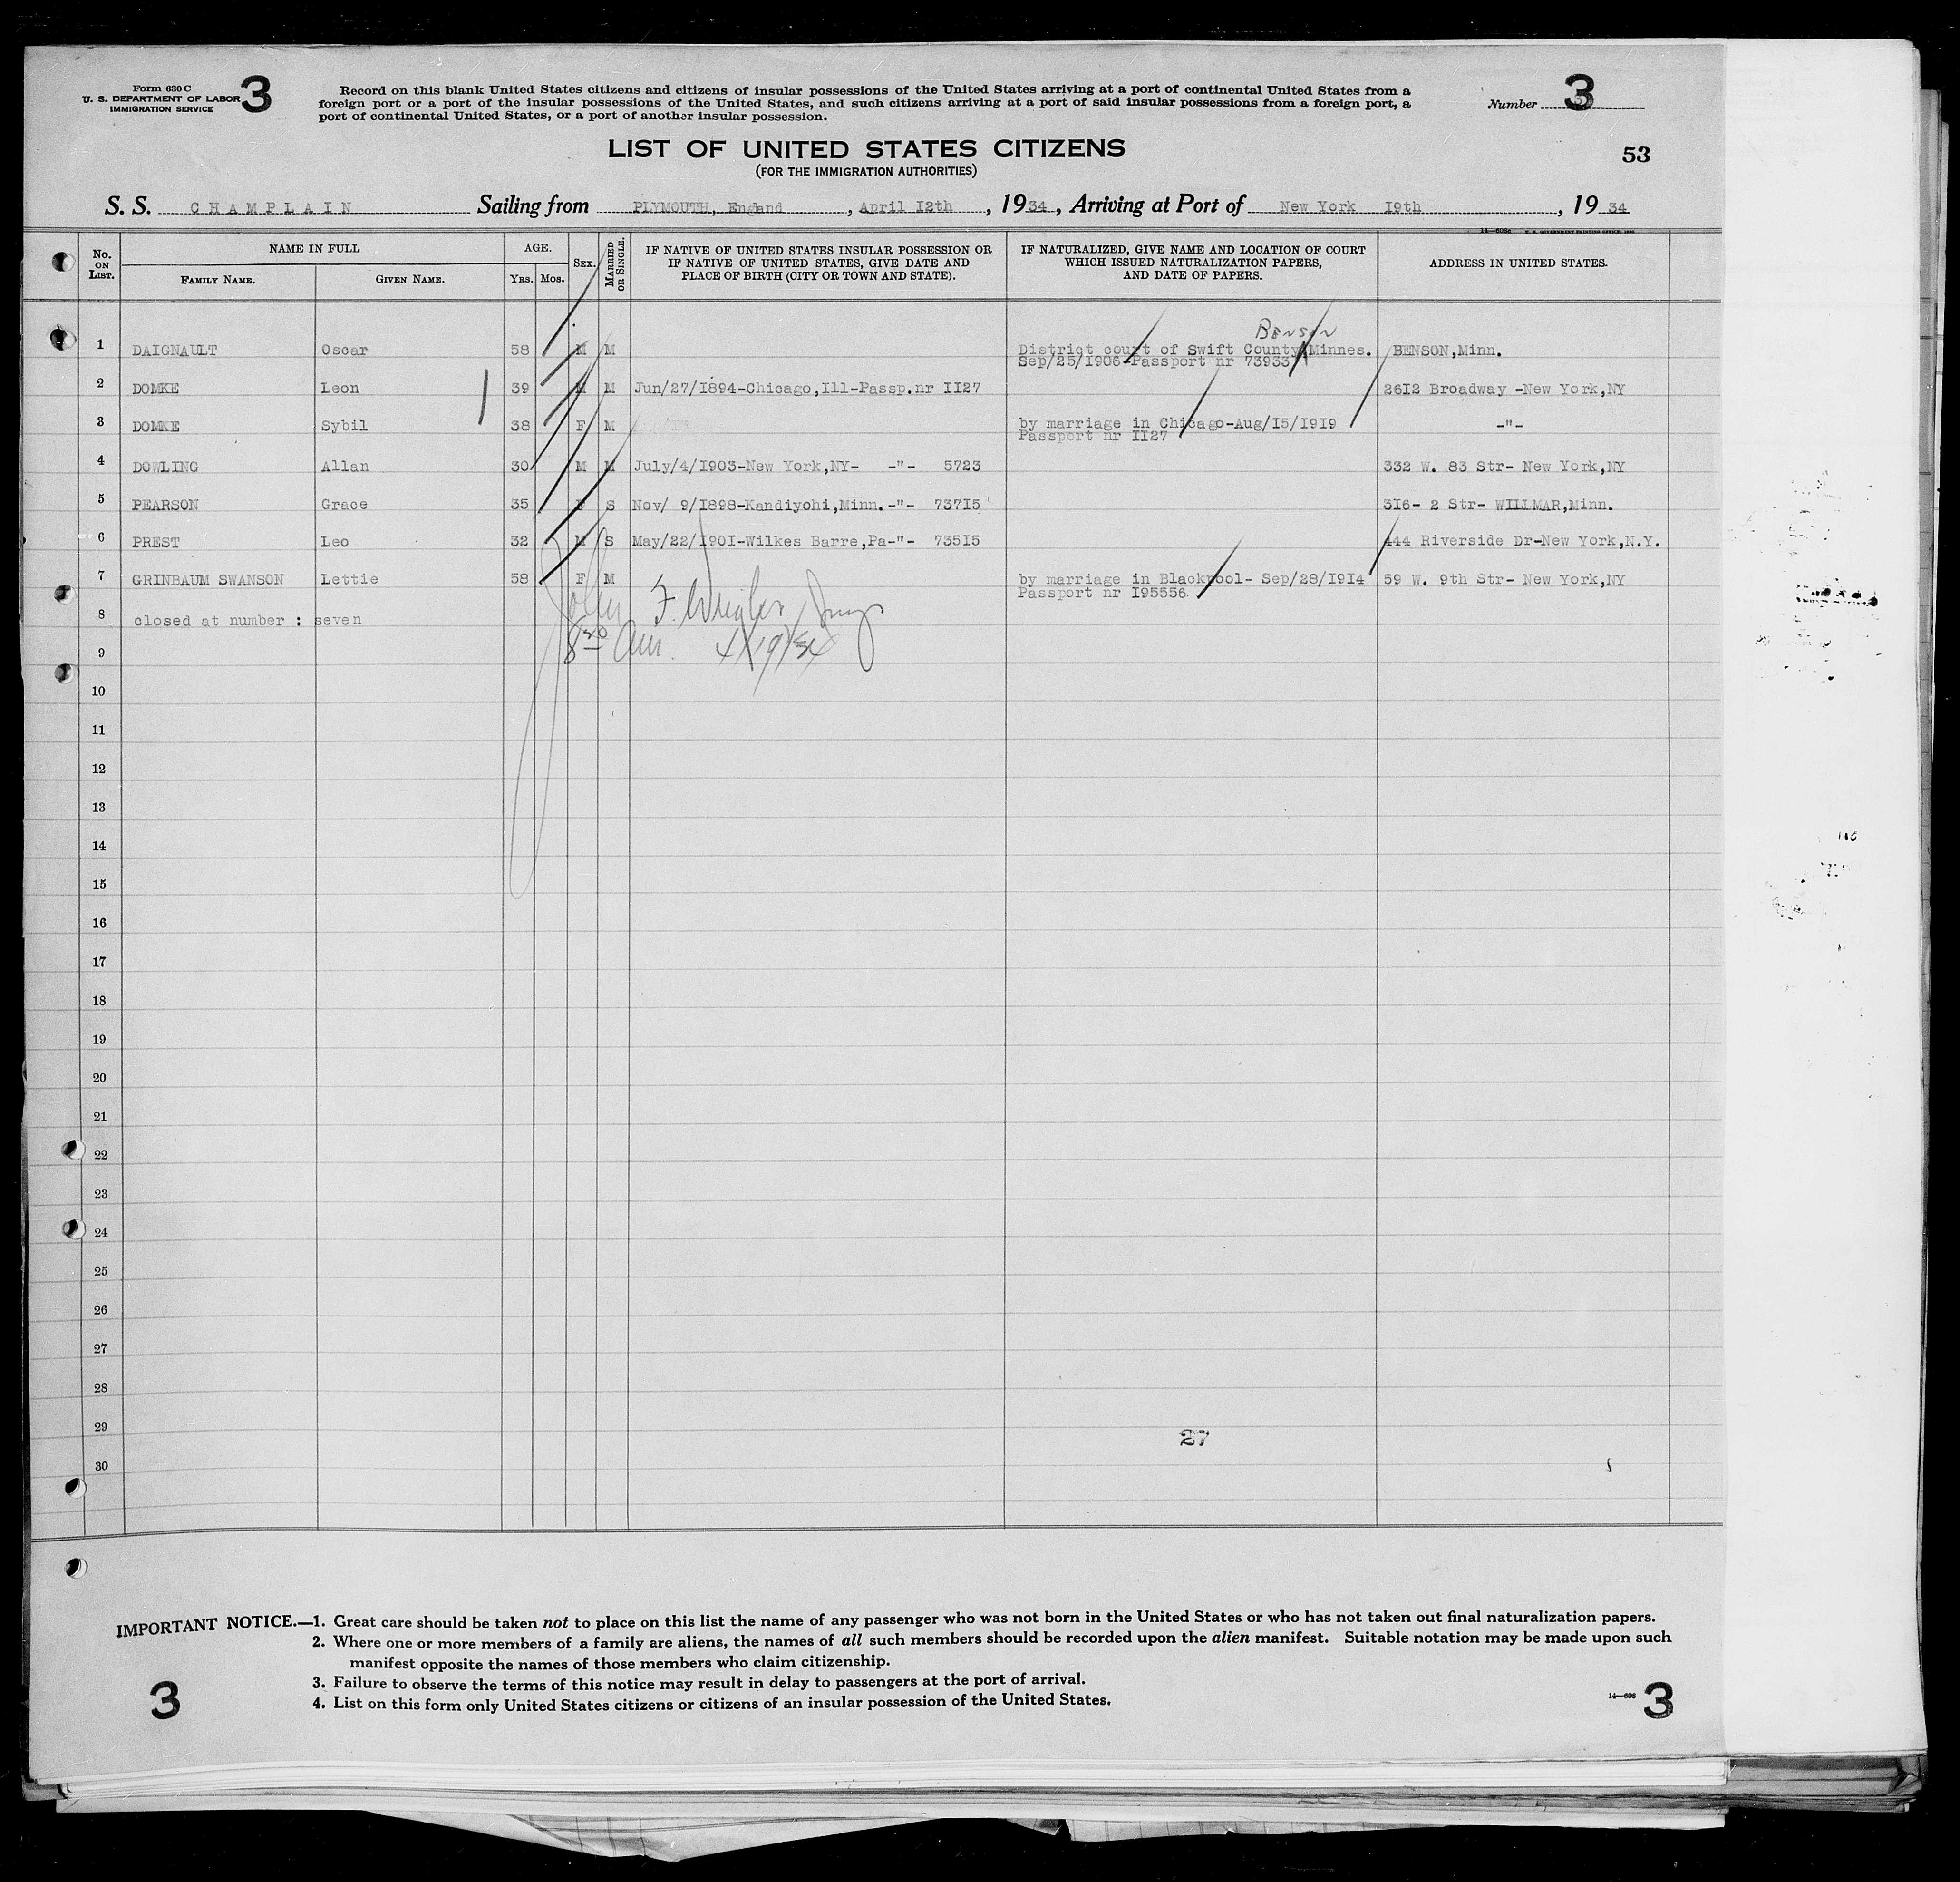 Form 630 C
U. S. DEPARTMENT OF LABOR
IMMIGRATION SERVICE
3
Record on this blank United States citizens and citizens of insular possessions of the United States arriving at a port of continental United States from a
foreign port or a port of the insular possessions of the United States, and such citizens arriving at a port of said insular possessions from a foreign port, a
port of continental United States, or a port of another insular possession.
Number 3
LIST OF UNITED STATES CITIZENS
(FOR THE IMMIGRATION AUTHORITIES)
53
S. S. CHAMPLAIN Sailing from PLYMOUTH, England, April I2th, 1934, Arriving at Port of New York I9th, 1934
No. ON LIST.
NAME IN FULL
FAMILY NAME.
GIVEN NAME.
AGE.
YRS.
MOS.
SEX.
MARRIED OR SINGLE.
IF NATIVE OF UNITED STATES INSULAR POSSESSION OR
IF NATIVE OF UNITED STATES, GIVE DATE AND
PLACE OF BIRTH (CITY OR TOWN AND STATE).
IF NATURALIZED, GIVE NAME AND LOCATION OF COURT
WHICH ISSUED NATURALIZATION PAPERS,
AND DATE OF PAPERS.
ADDRESS IN UNITED STATES.
Benson
1 DAIGNAULT Oscar 58 M M District court of Swift County Minnes. BENSON,Minn.
Sep/25/I906-Passport nr 73933
2 DOMKE Leon 39 M M Jun/27/I894-Chicago,Ill-Passp.nr II27 26I2 Broadway -New York,NY
3 DOMKE Sybil 38 F M by marriage in Chicago-Aug/I5/I9I9 -"-
Passport nr II27
4 DOWLING Allan 30 M M July/4/I903-New York,NY- -"- 5723 332 W. 83 Str- New York,NY
5 PEARSON Grace 35 F S Nov/ 9/I898-Kandiyohi,Minn.-"- 737I5 3I6- 2 Str- WILLMAR,Minn.
6 PREST Leo 32 M S May/22/I90I-Wilkes Barre,Pa-"- 735I5 444 Riverside Dr-New York,N.Y.
7 GRINBAUM SWANSON Lettie 58 F M by marriage in Blackpool- Sep/28/I9I4 59 W. 9th Str- New York,NY
Passport nr I95556
8 closed at number : seven
4/19/34
9
10
11
12
13
14
15
16
17
18
19
20
21
22
23
24
25
26
27
28
29
27
30
IMPORTANT NOTICE.—1. Great care should be taken not to place on this list the name of any passenger who was not born in the United States or who has not taken out final naturalization papers.
2. Where one or more members of a family are aliens, the names of all such members should be recorded upon the alien manifest. Suitable notation may be made upon such
manifest opposite the names of those members who claim citizenship.
3. Failure to observe the terms of this notice may result in delay to passengers at the port of arrival.
4. List on this form only United States citizens or citizens of an insular possession of the United States.
3
14—608
3